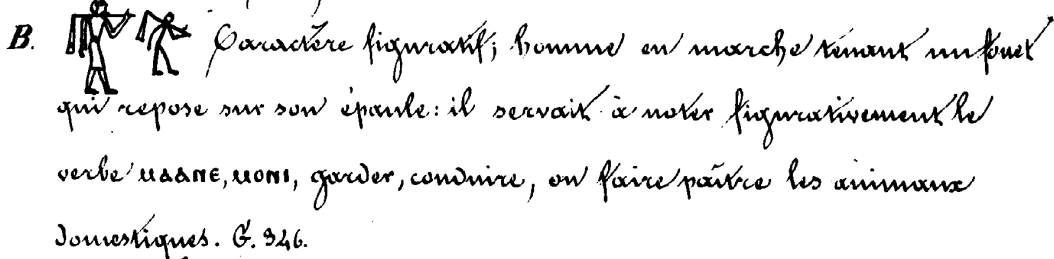 B. Caractère figuratif; homme en marche tenant un fouet
qui repose sur son épaule: il servait à noter figurativement le
verbe ⲙⲁⲁⲛⲉ, ⲙⲟⲛⲓ, garder, conduire, ou faire paître les animaux
domestiques. G. 346.